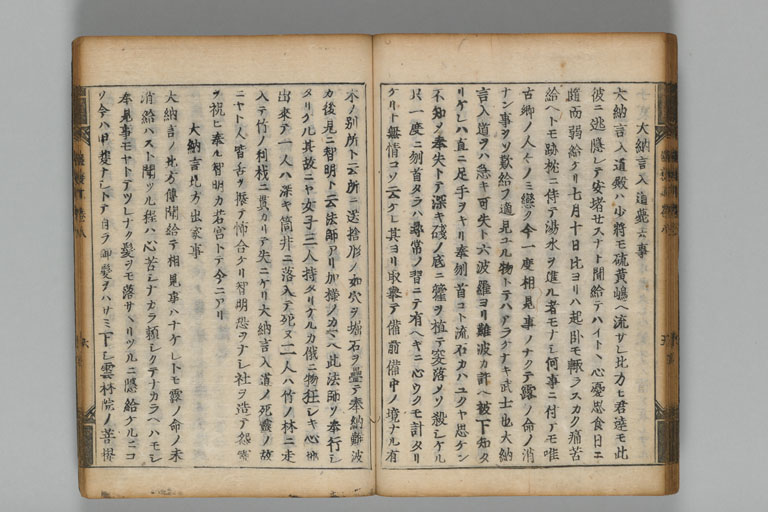 大納言入道薨去事
大納言入道殿ハ少將モ硫黄嶋ヘ流サレ此カヒ君達モ此
彼ニ逃隱レテ安堵セスナト聞給テハイトヽ心憂思食日ニ
隨而弱給ケリ七月十日比ヨリハ起卧モ輙ラスカク痛苦
給ヘトモ跡枕ニ侍テ湯水ヲ進ル者モナシ何事ニ付テモ唯
古郷ノ人々ノミ戀ク今一度相見事ノナクテ露ノ命ノ消
ナン事ヲソ歎給フ適見ユル物トテハアラケナキ武士也大納
言入道ヲハ急キ可失ト六波羅ヨリ難波カ許ヘ被下知タ
リケレハ直ニ足手ヲキリ奉刎首コト流石カハユクヤ思ケン
不知ソ奉失トテ深キ磯ノ底ニ ヲ植テ突落ソ殺シケル
只一度ニ刎首タラハ尋常ノ習ニテ有ヘキニ心ウクモ計タリ
ケリト無情コソ云ケレ其ヨリ取擧テ備前備中ノ境ナル有
木ノ別所ト云所ニ送捨形ノ如穴ヲ堀石ヲ疊テ奉納難波
カ後見ニ智明ト云法師アリ加樣ノ事ヘハ此法師ソ奉行シ
タリケル其故ニヤ女子三人持タリケルカ俄ニ物狂シキ心地
出來テ一人ハ深キ筒井ニ落入テ死ヌ二人ハ竹ノ林ニ走
入テ竹ノ利杭ニ貫カリテ失ニケリ大納言入道ノ死靈ノ故
ニヤト人皆舌ヲ振テ怖合ケリ智明恐ヲナシ社ヲ造テ怨靈
ヲ祝ヒ奉ル智明カ若宮トテ今ニアリ
大納言北方出家事
大納言ノ北方傳聞給テ相見事ハナケレトモ露ノ命ノ未
消給ハスト聞ツル程ハ心苦シナカラ頼シクテナカラヘハモシ
奉見事モヤトテツレナク髪ヲモ落サヽリツルニ隱給ケルニコ
ソ今ハ甲斐ナシトテ自ラ御髪ヲハサミ下シ雲林院ノ菩提